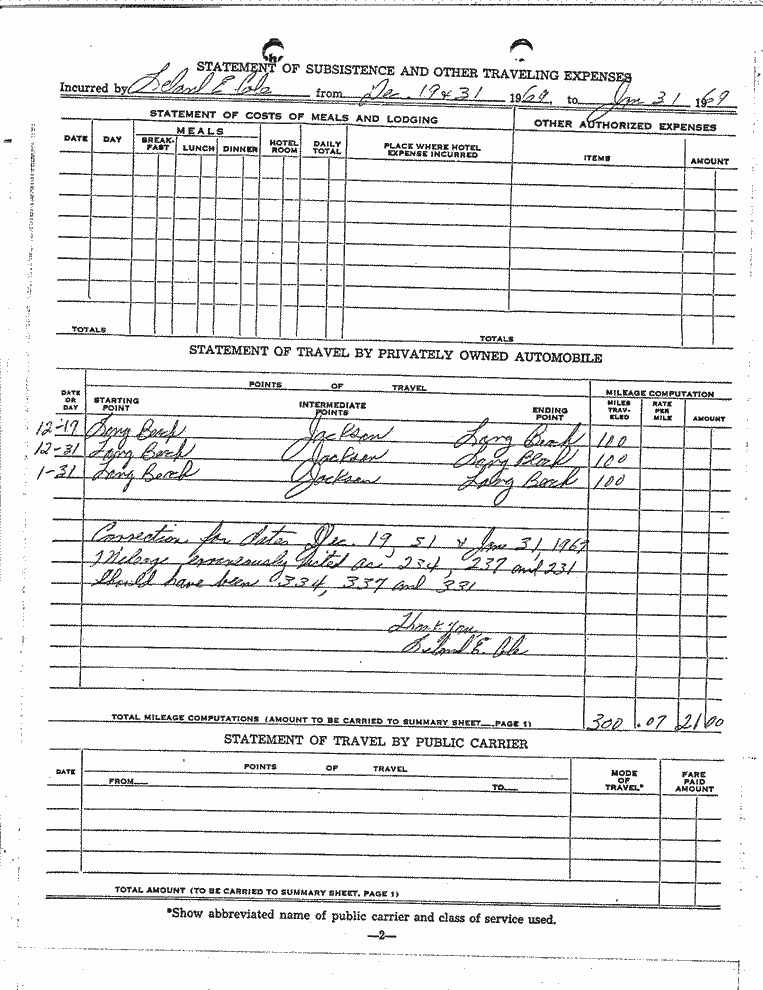 STATEMENT OF SUBSISTENCE AND OTHER TRAVELING EXPENSES
Incurred by Leland E Cole from Dec. 19 & 31 1969, to Jan 31 1969
STATEMENT OF COSTS OF MEALS AND LODGING
OTHER AUTHORIZED EXPENSES
DATE DAY MEALS BREAK-FAST LUNCH DINNER HOTEL ROOM DAILY TOTAL PLACE WHERE HOTEL EXPENSE INCURRED ITEMS AMOUNT
TOTALS TOTALS
STATEMENT OF TRAVEL BY PRIVATELY OWNED AUTOMOBILE
DATE OR DAY POINTS OF TRAVEL MILEAGE COMPUTATION
STARTING POINT INTERMEDIATE POINTS ENDING POINT MILES TRAV-ELED RATE PER MILE AMOUNT
12-19 Long Beach Jackson Long Beach 100
12-31 Long Beach Jackson Long Beach 100
1-31 Long Beach Jackson Long Beach 100
Correction for dates Dec. 19, 31 & Jan 31, 1969
Mileage erroneously listed as: 234, 237 and 231
Should have been 334, 337 and 331
Thank you,
Leland E. Cole
TOTAL MILEAGE COMPUTATIONS (AMOUNT TO BE CARRIED TO SUMMARY SHEET PAGE 1) 300 .07 21 00
STATEMENT OF TRAVEL BY PUBLIC CARRIER
DATE POINTS OF TRAVEL MODE OF TRAVEL* FARE PAID AMOUNT
FROM TO
TOTAL AMOUNT (TO BE CARRIED TO SUMMARY SHEET, PAGE 1)
*Show abbreviated name of public carrier and class of service used.
—2—